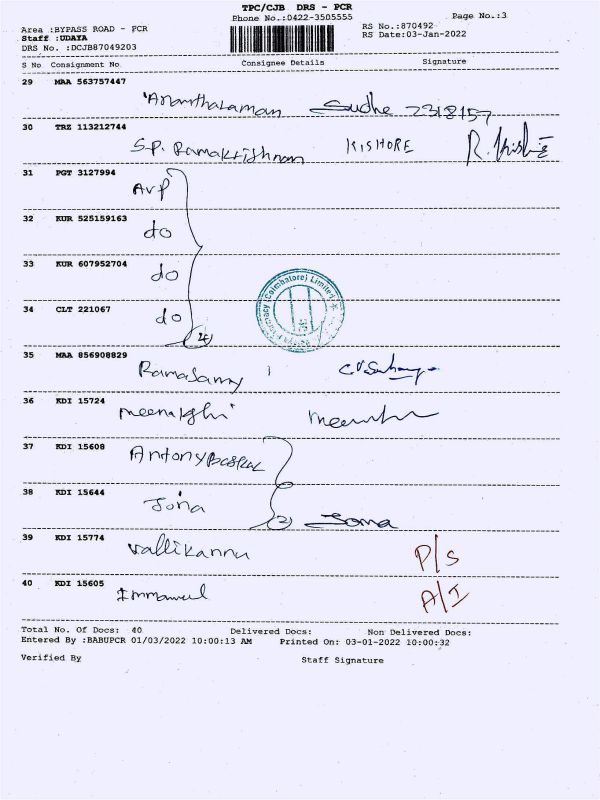 TPC/CJB DRS - PCR
Phone No.:0422-3505555 Page No.:3
Area :BYPASS ROAD - PCR RS No.:870492
Staff :UDAYA RS Date:03-Jan-2022
DRS No. :DCJB87049203
S No Consignment No Consignee Details Signature
29 MAA 563757447
Ananthalaman Sudhe 2318157
30 TRZ 113212744
S.P. Ramakrishnan KISHORE
31 PGT 3127994
AVP
32 KUR 525159163
do
33 KUR 607952704
do
34 CLT 221067
do (4)
(Coimbatore) Limited
35 MAA 856908829
Ramasamy
36 KDI 15724
meenakshi
37 KDI 15608
Antony
38 KDI 15644
Jona (2) Jona
39 KDI 15774
Vallikannu P/S
40 KDI 15605
Immanuel A/I
Total No. Of Docs: 40 Delivered Docs: Non Delivered Docs:
Entered By :BABUPCR 01/03/2022 10:00:13 AM Printed On: 03-01-2022 10:00:32
Verified By Staff Signature